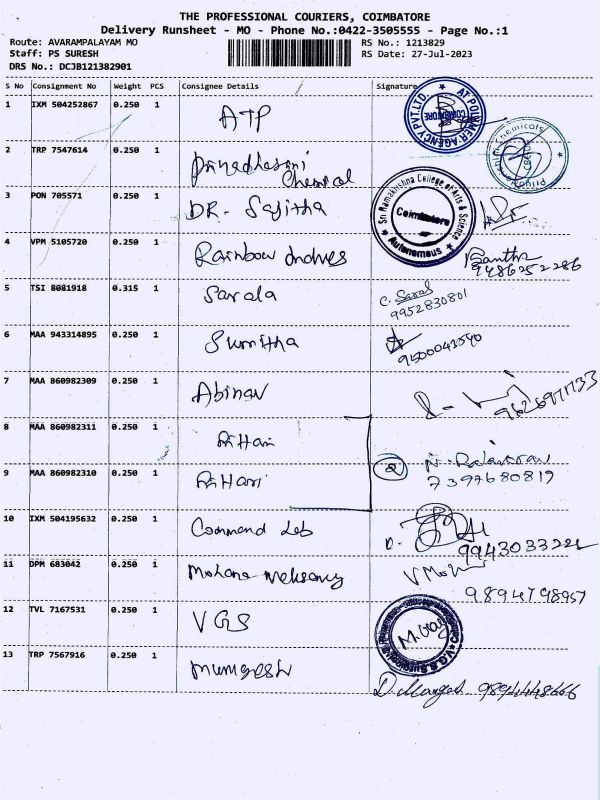 THE PROFESSIONAL COURIERS, COIMBATORE
Delivery Runsheet - MO - Phone No.:0422-3505555 - Page No.:1
Route: AVARAMPALAYAM MO RS No.: 1213829
Staff: PS SURESH RS Date: 27-Jul-2023
DRS No.: DCJB121382901
S No Consignment No Weight PCS Consignee Details Signature
1 IXM 504252867 0.250 1 ATP
AT POLYMER AGENCY PVT.LTD. COIMBATORE
2 TRP 7547614 0.250 1 Priyadharsini Chemical
3 PON 705571 0.250 1 DR. Sajitha
Sri Ramakrishna College of Arts & Science Coimbatore Autonomous
4 VPM 5105720 0.250 1 Rainbow
9486252286
5 TSI 8081918 0.315 1 Sarala
9952830801
6 MAA 943314895 0.250 1 Sumitha
9500043540
7 MAA 860982309 0.250 1 Abinav
8 MAA 860982311 0.250 1 Hari
9 MAA 860982310 0.250 1 Hari
2
7397680819
10 IXM 504195632 0.250 1 Command Lab
11 DPM 683042 0.250 1 Mohana
V Moh
9894798957
12 TVL 7167531 0.250 1 VGS
13 TRP 7567916 0.250 1 Murugesh